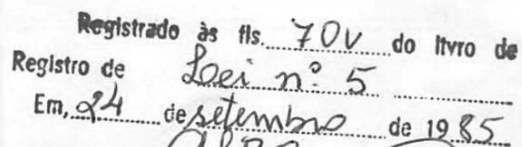 Registrado às fls. 70v do livro de
Registro de Lei nº 5
Em, 24 de setembro de 1985